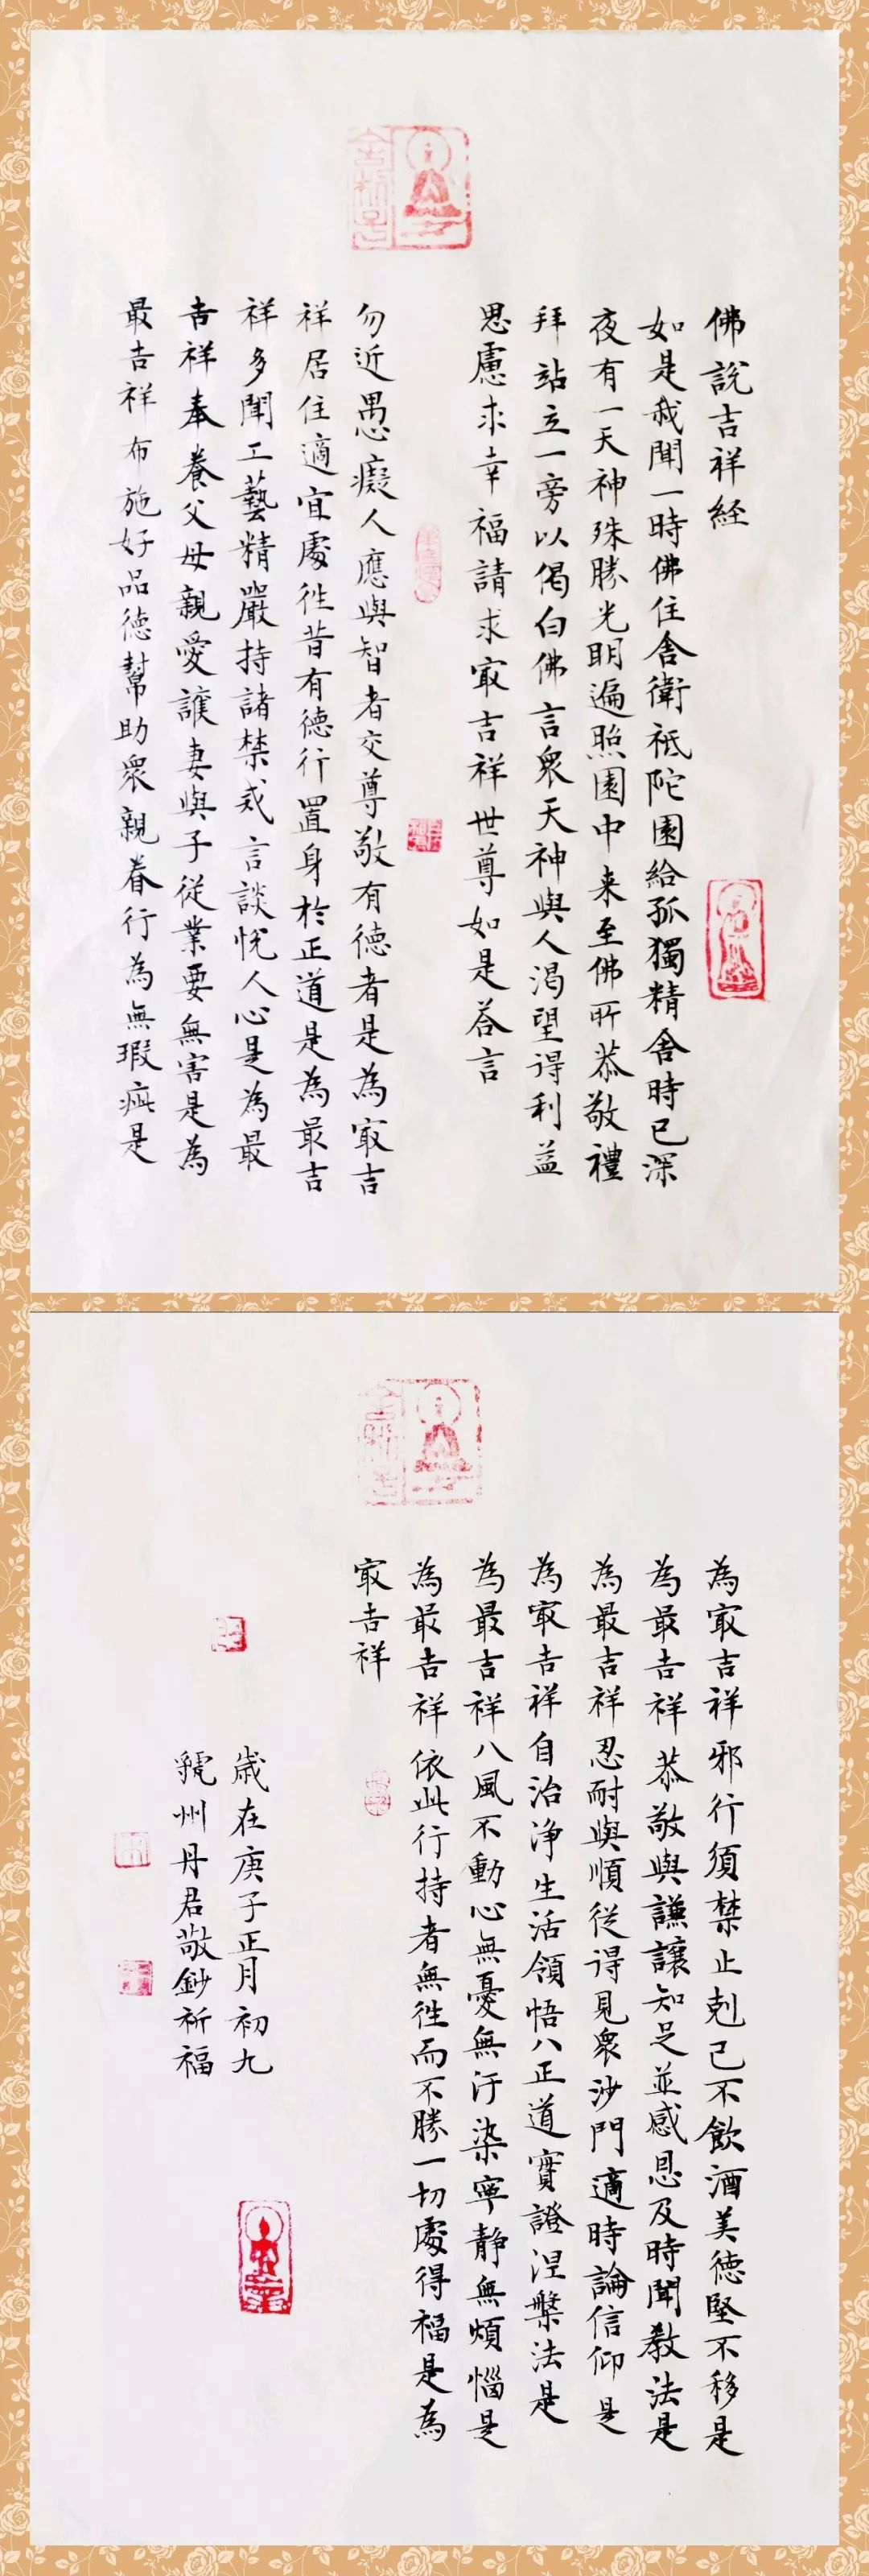 佛說吉祥経
如是我聞一時佛住舎衛祗陀園給孤獨精舎時已深
夜有一天神殊勝光明遍照園中来至佛所恭敬禮
拜站立一旁以偈白佛言衆天神與人渴望得利益
思慮求幸福請求冣吉祥世尊如是荅言
勿近愚癡人應與智者交尊敬有德者是為冣吉
祥居住適宜處徃昔有德行置身於正道是為最吉
祥多聞工藝精嚴持諸禁戒言談悅人心是為最
吉祥奉養父母親愛護妻與子従業要無害是為
最吉祥布施好品德幫助衆親眷行為無瑕疵是
為冣吉祥邪行須禁止剋己不飲酒美德堅不移是
為最吉祥恭敬與謙讓知足並感恩及時聞教法是
為最吉祥忍耐與順従得見衆沙門適時論信仰是
為冣吉祥自治净生活領悟八正道實證涅槃法是
為最吉祥八風不動心無憂無汙染寧静無煩惱是
為最吉祥依此行持者無徃而不勝一切處得福是為
冣吉祥
歲在庚子正月初九
虢州丹君敬鈔祈福